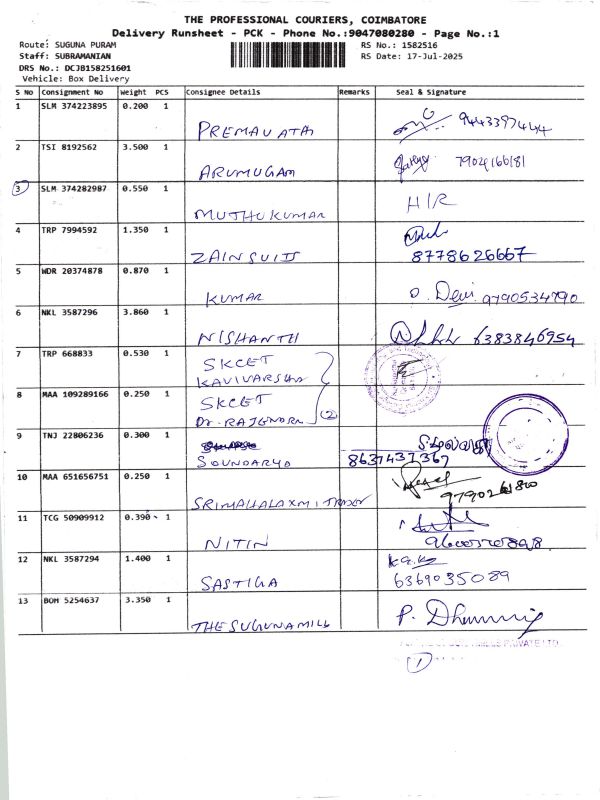 THE PROFESSIONAL COURIERS, COIMBATORE
Delivery Runsheet - PCK - Phone No.:9047080280 - Page No.:1
Route: SUGUNA PURAM RS No.: 1582516
Staff: SUBRAMANIAN RS Date: 17-Jul-2025
DRS No.: DCJB158251601
Vehicle: Box Delivery
S No Consignment No Weight PCS Consignee Details Remarks Seal & Signature
1 SLM 374223895 0.200 1
PREMAVATHI 9443397444
2 TSI 8192562 3.500 1
ARUMUGAM 7904166181
3 SLM 374282987 0.550 1
MUTHUKUMAR H/R
4 TRP 7994592 1.350 1
ZAINSUIIS 8778626667
5 WDR 20374878 0.870 1
KUMAR D. Devi 9790534790
6 NKL 3587296 3.860 1
NISHANTH 6383846954
7 TRP 668833 0.530 1
SKCET
KAVIVARSHA
8 MAA 109289166 0.250 1
SKCET
Dr. RAJENDRA (2)
9 TNJ 22806236 0.300 1
SOUNDARYA 8637431367
10 MAA 651656751 0.250 1
SRIMAHALAXMI TRADER 9790261800
11 TCG 50909912 0.390 1
NITIN
12 NKL 3587294 1.400 1
SASTIGA 6369035089
13 BOM 5254637 3.350 1
THE SUGUNA MILL P. Dhanraj
PRIVATE LTD.
1